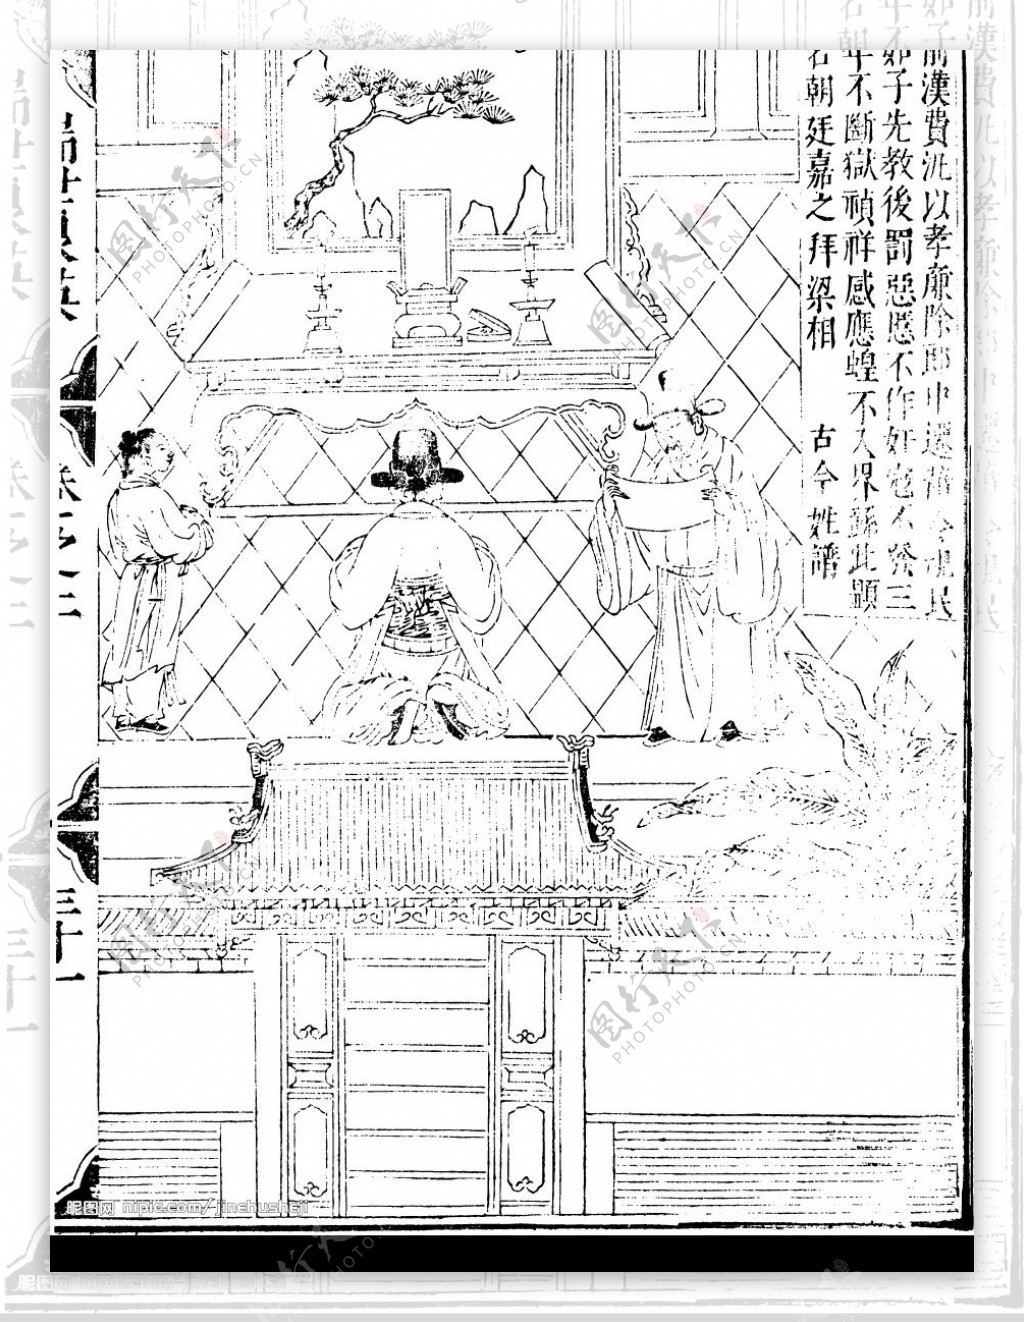 前漢費汎以孝廉除郎中遷蕭令視民
如子先教後罰惡慝不作奸宄不發三
年不斷獄禎祥感應蝗不入界繇此顯
名朝廷嘉之拜梁相 古今姓譜
卷之二
三十一
昵图网 nipic.com/jinchusheji
图行天下
PHOTOPHOTO.CN